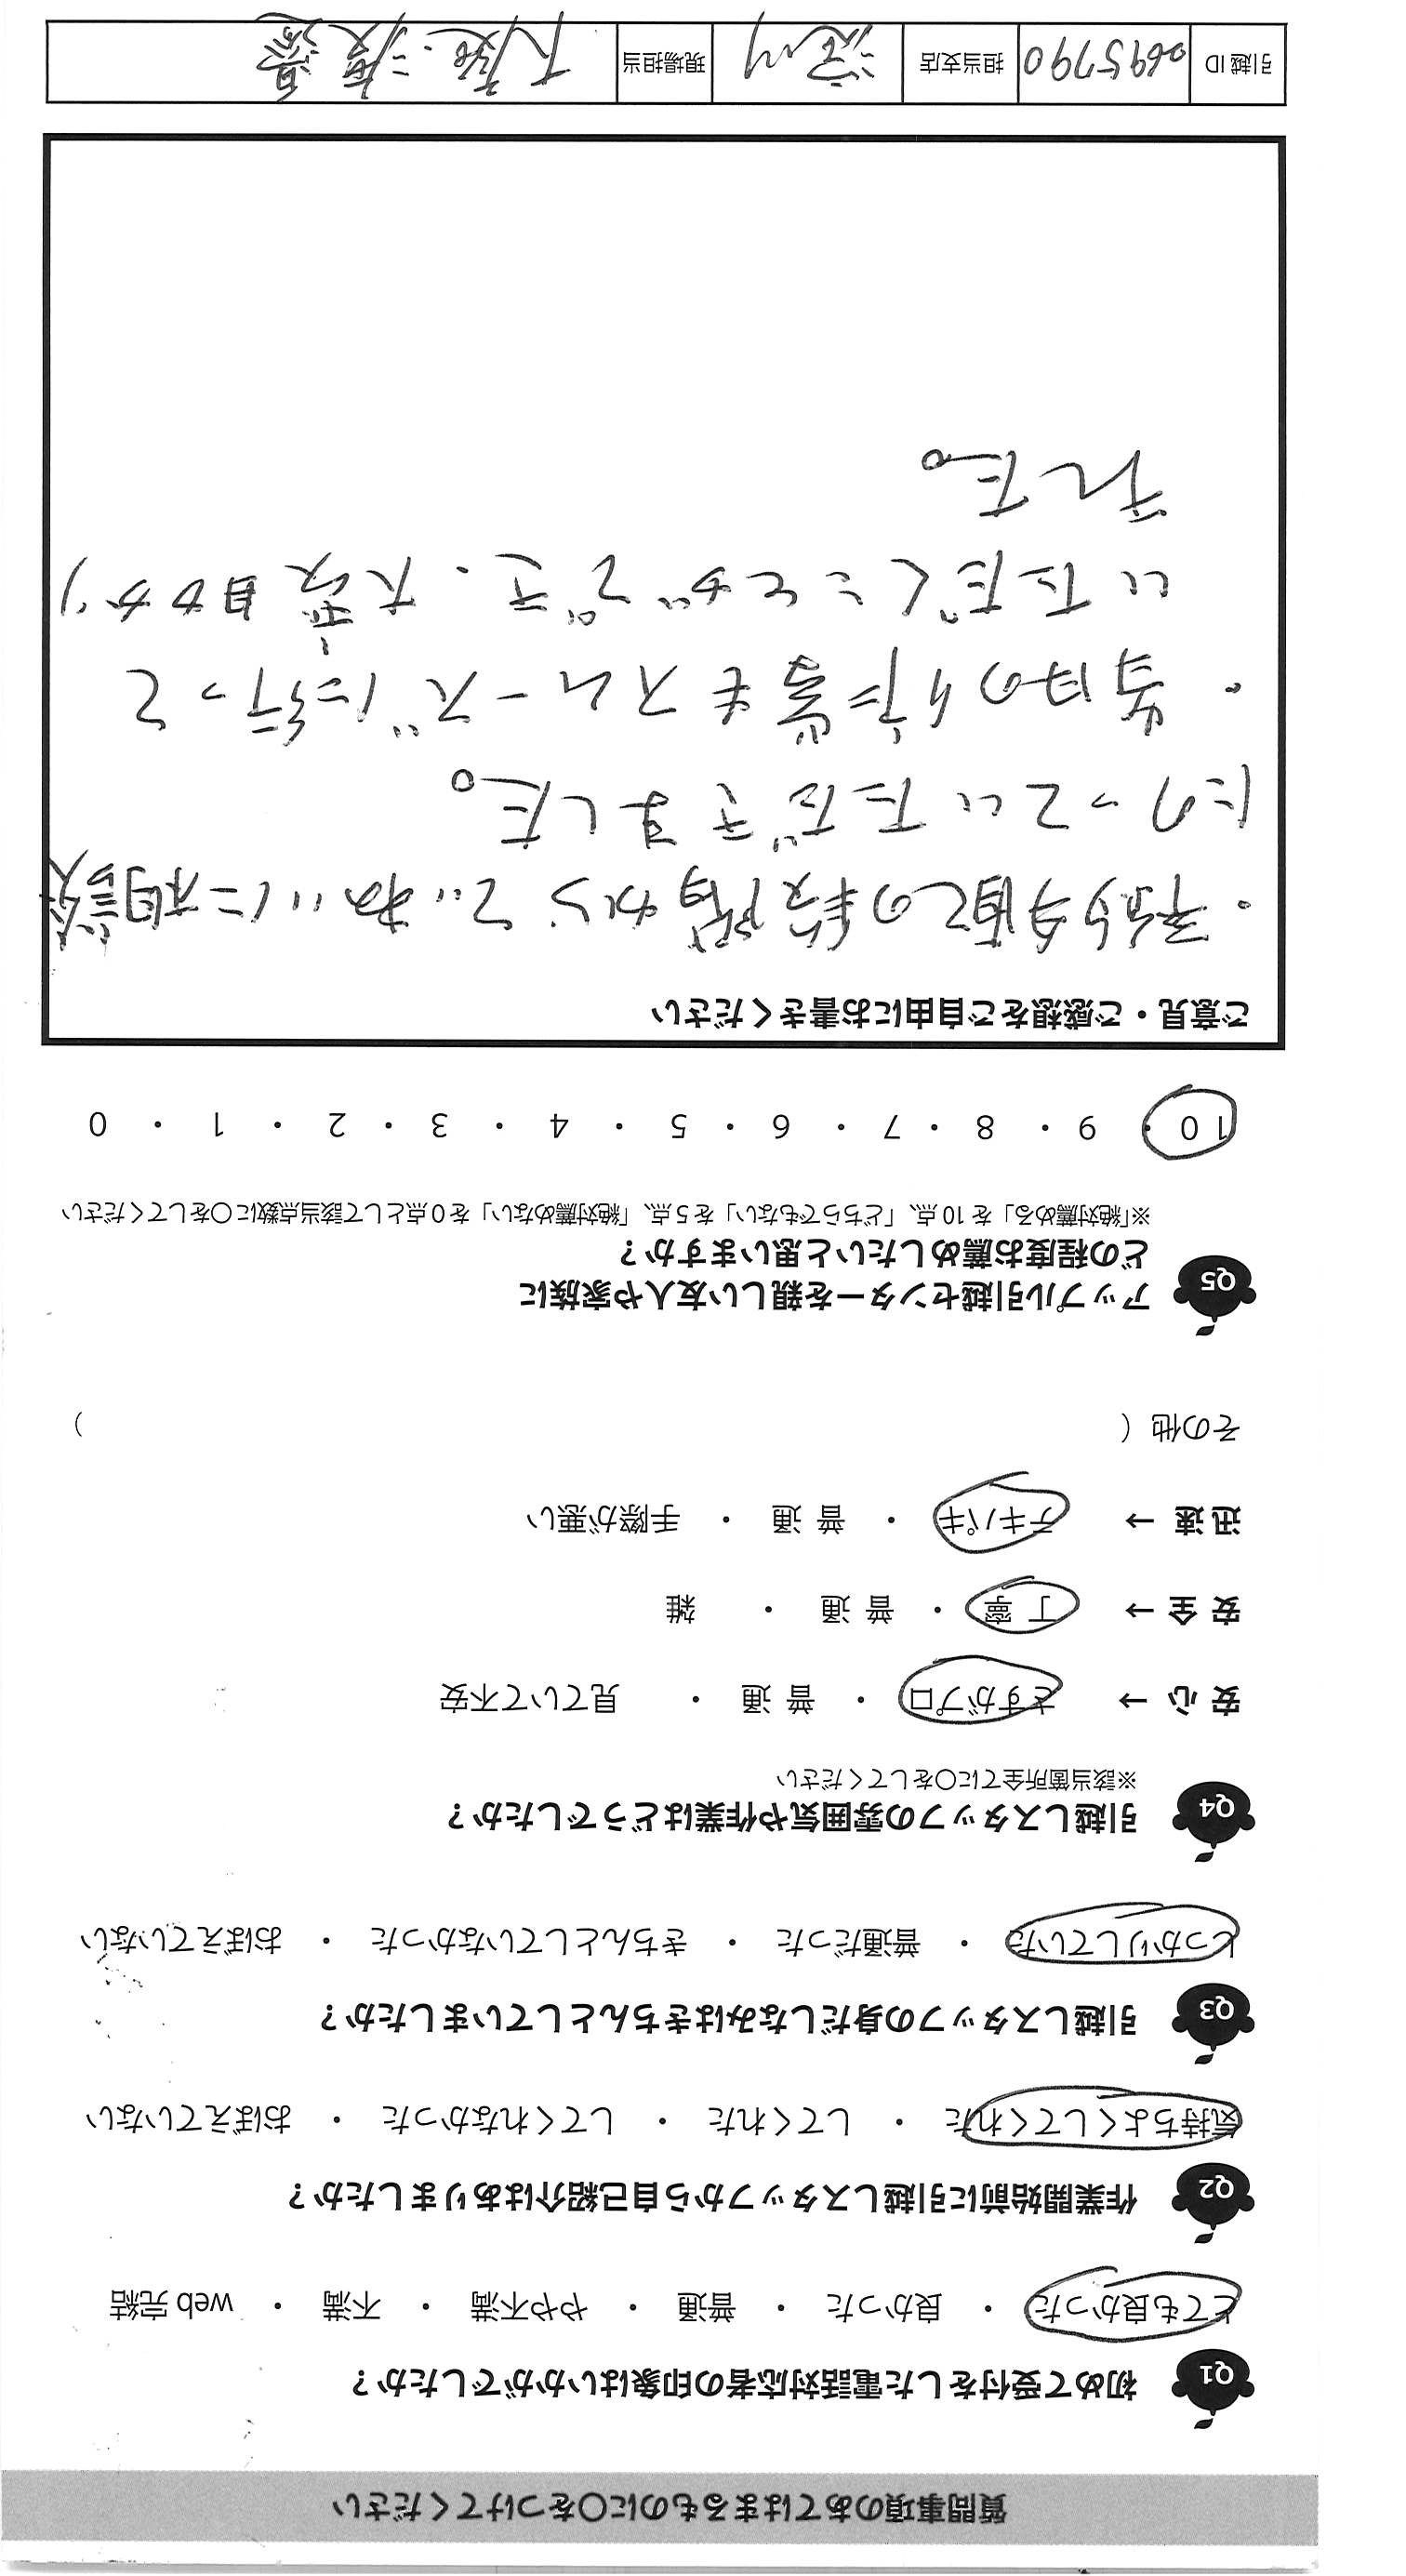 質問事項のあてはまるものに○をつけてください
Q1 初めて受付をした電話対応者の印象はいかがでしたか？
とても良かった ・ 良かった ・ 普通 ・ やや不満 ・ 不満 ・ web 完結
Q2 作業開始前に引越しスタッフから自己紹介はありましたか？
気持ちよくしてくれた ・ してくれた ・ してくれなかった ・ おぼえていない
Q3 引越しスタッフの身だしなみはきちんとしていましたか？
しっかりしていた ・ 普通だった ・ きちんとしていなかった ・ おぼえていない
Q4 引越しスタッフの雰囲気や作業はどうでしたか？
※該当箇所全てに○をしてください
安心 → さすがプロ ・ 普通 ・ 見ていて不安
安全 → 丁寧 ・ 普通 ・ 雑
迅速 → テキパキ ・ 普通 ・ 手際が悪い
その他（ ）
Q5 アップル引越センターを親しい友人や家族に
どの程度お薦めしたいと思いますか？
※「絶対薦める」を 10 点、「どちらでもない」を 5 点、「絶対薦めない」を 0 点として該当点数に○をしてください
10 ・ 9 ・ 8 ・ 7 ・ 6 ・ 5 ・ 4 ・ 3 ・ 2 ・ 1 ・ 0
ご意見・ご感想をご自由にお書きください
・見積の段階からていねいに相談
にのっていただきました。
・当日の作業もスムーズに行って
いただくことができ、大変助かり
ました。
引越 ID 2695790 担当支店 現場担当